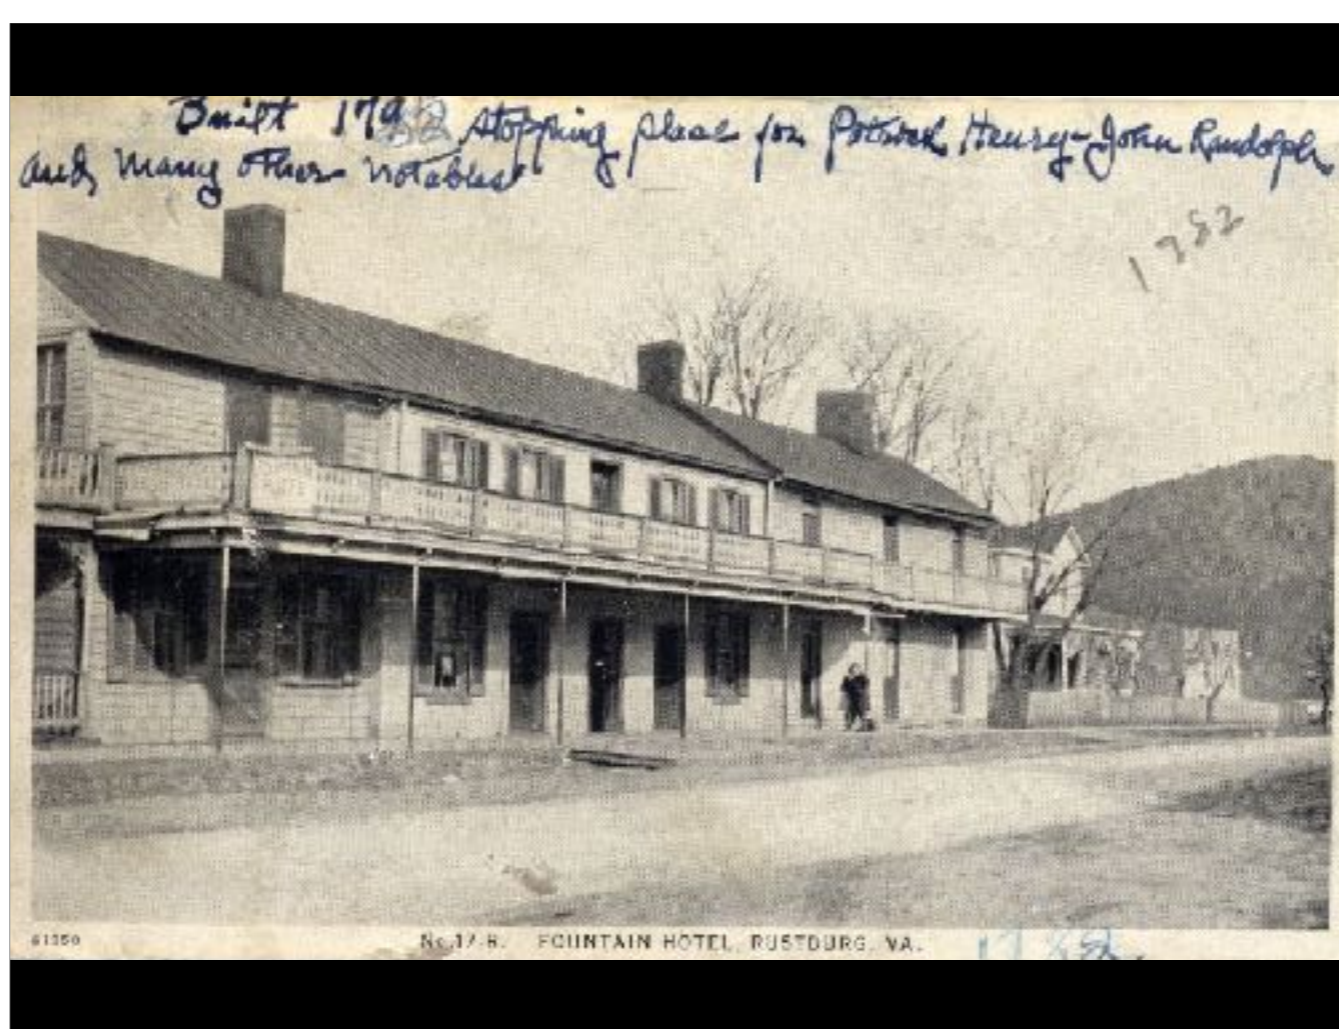 Built 179 stopping place for Patrick Henry-John Randolph
and many other notables
1782
61350 No. 17-B. FOUNTAIN HOTEL, RUSTBURG, VA. 1782.